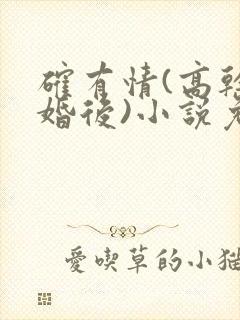 確有情(高幹
婚後)小說免
愛喫草的小貓